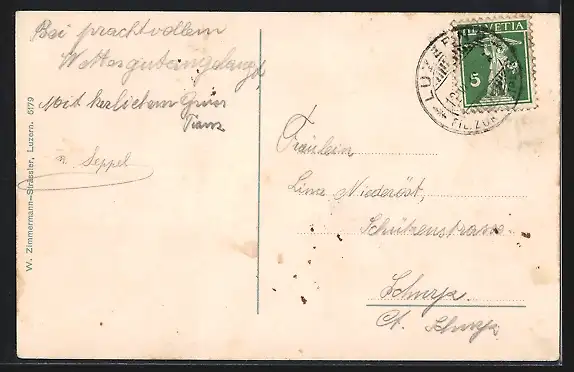 Bei prachtvollem
Wetter gut angelangt,
Mit herzlichem Gruss
Franz
n. Seppel
W. Zimmermann-Strässler, Luzern. 6179
HELVETIA
5
LUZERN
FIL.
Fräulein
Lina Niederöst,
Schützenstrasse
Schwyz.
Ct. Schwyz